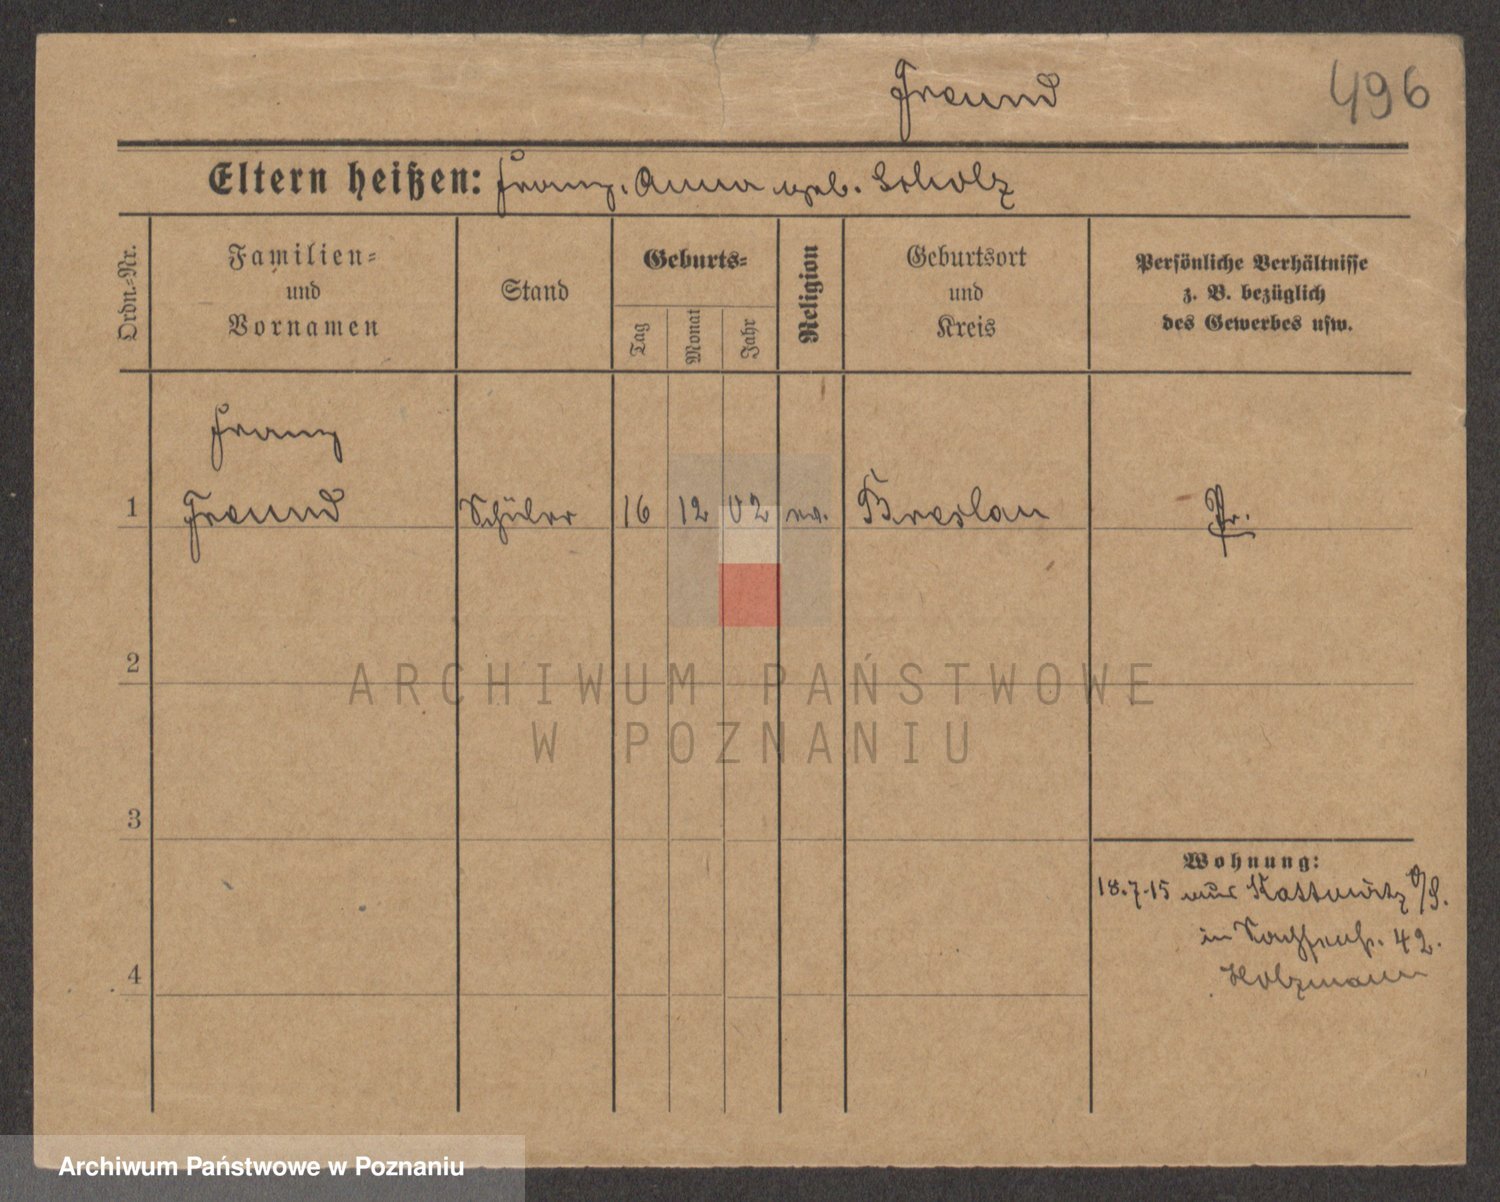 Freund
496
Eltern heißen: Franz. Anna geb. Scholz
Ordn.-Nr.
Familien- und Vornamen
Stand
Geburts-
Tag
Monat
Jahr
Religion
Geburtsort und Kreis
Persönliche Verhältnisse z. B. bezüglich des Gewerbes usw.
Franz
1 Freund Schüler 16 12 02 ev. Breslau Pr.
2
ARCHIWUM PAŃSTWOWE
W POZNANIU
3
Wohnung:
18.7.15 aus Kattowitz O/S.
in Sachsenstr. 42.
4
Holzmann
Archiwum Państwowe w Poznaniu